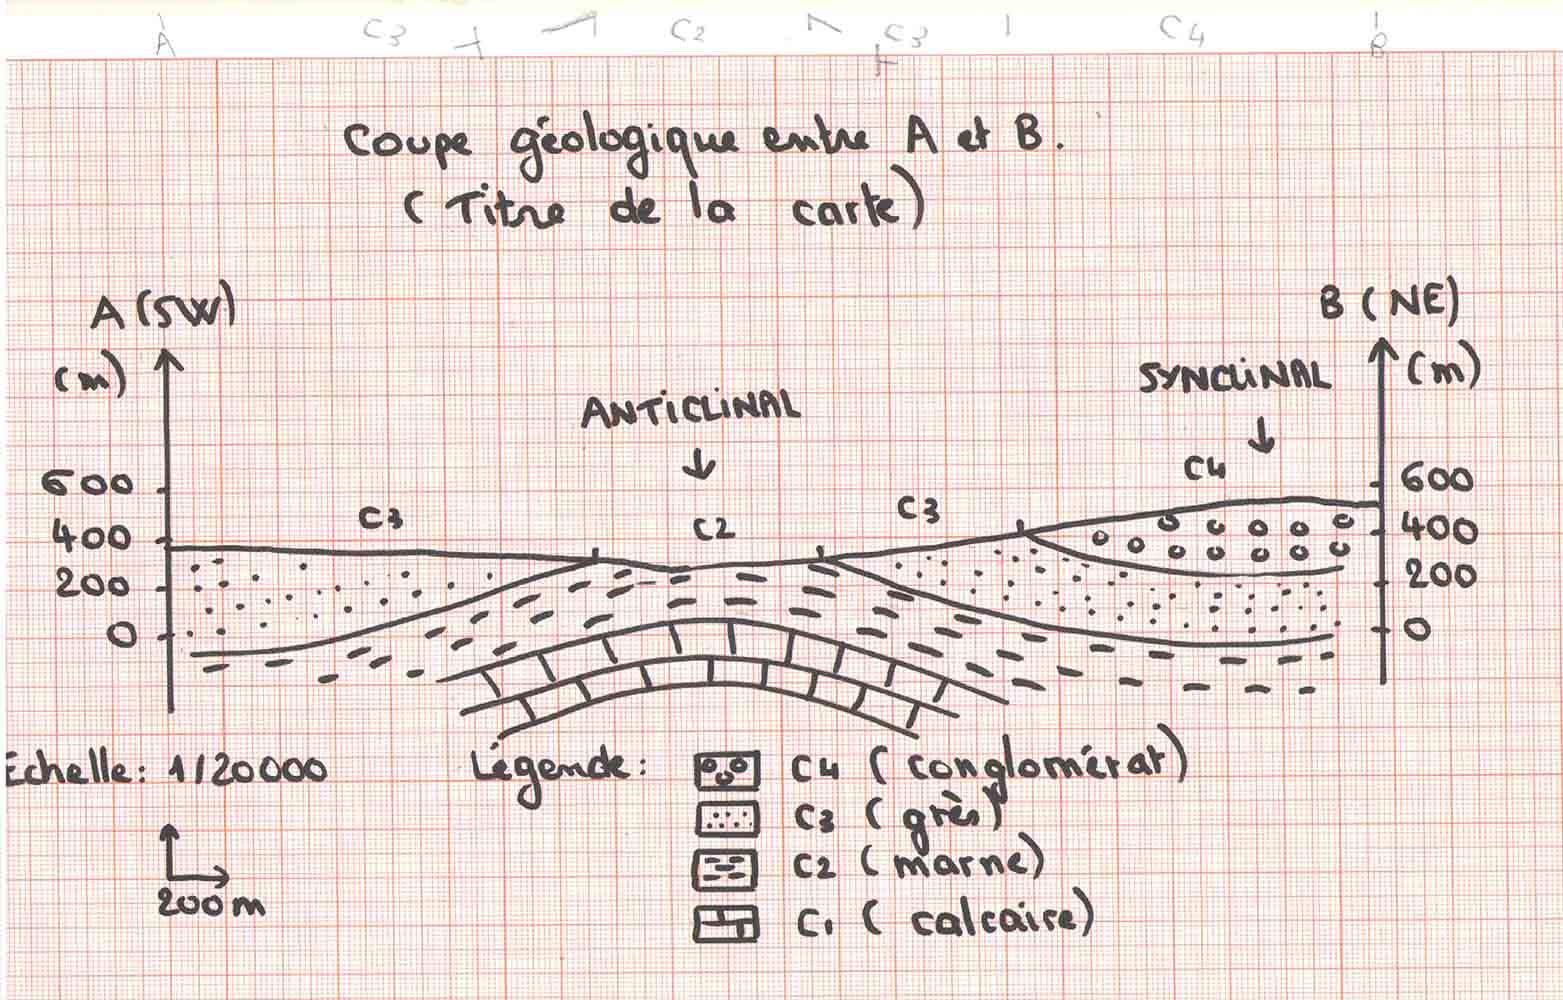 A C3 C2 C3 C4 B
Coupe géologique entre A et B.
(Titre de la carte)
A (SW) B (NE)
(m) (m)
ANTICLINAL SYNCLINAL
C3 C2 C3 C4
600 600
400 400
200 200
0 0
Echelle: 1/20000
200m
Légende:
C4 (conglomérat)
C3 (grès)
C2 (marne)
C1 (calcaire)